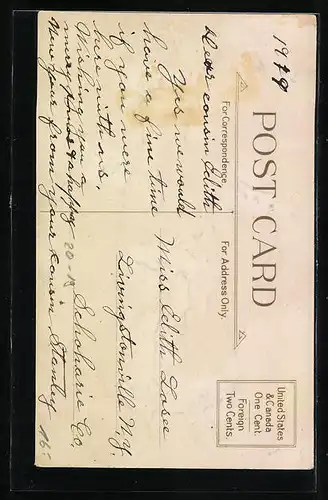 1919
POST CARD
For Correspondence
For Address Only.
United States
& Canada
One Cent.
Foreign
Two Cents.
Dear cousin Edith
Yes we would
have a fine time
if you were
here with us,
Wishing you a
mery Xmas & a happy
New year from your cousin Stanley
Miss Edith Lasee
Livingstonville N.Y.
Schoharie Co.